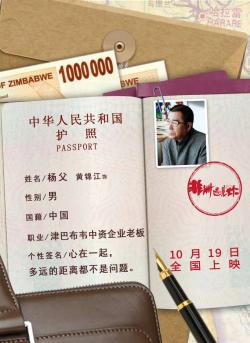 哈拉雷
HARARE
OF ZIMBABWE
1000000
中华人民共和国
护 照
PASSPORT
姓名/杨父 黄锦江饰
性别/男
国籍/中国
职业/津巴布韦中资企业老板
个性签名/心在一起，
多远的距离都不是问题。
10月19日
全国上映